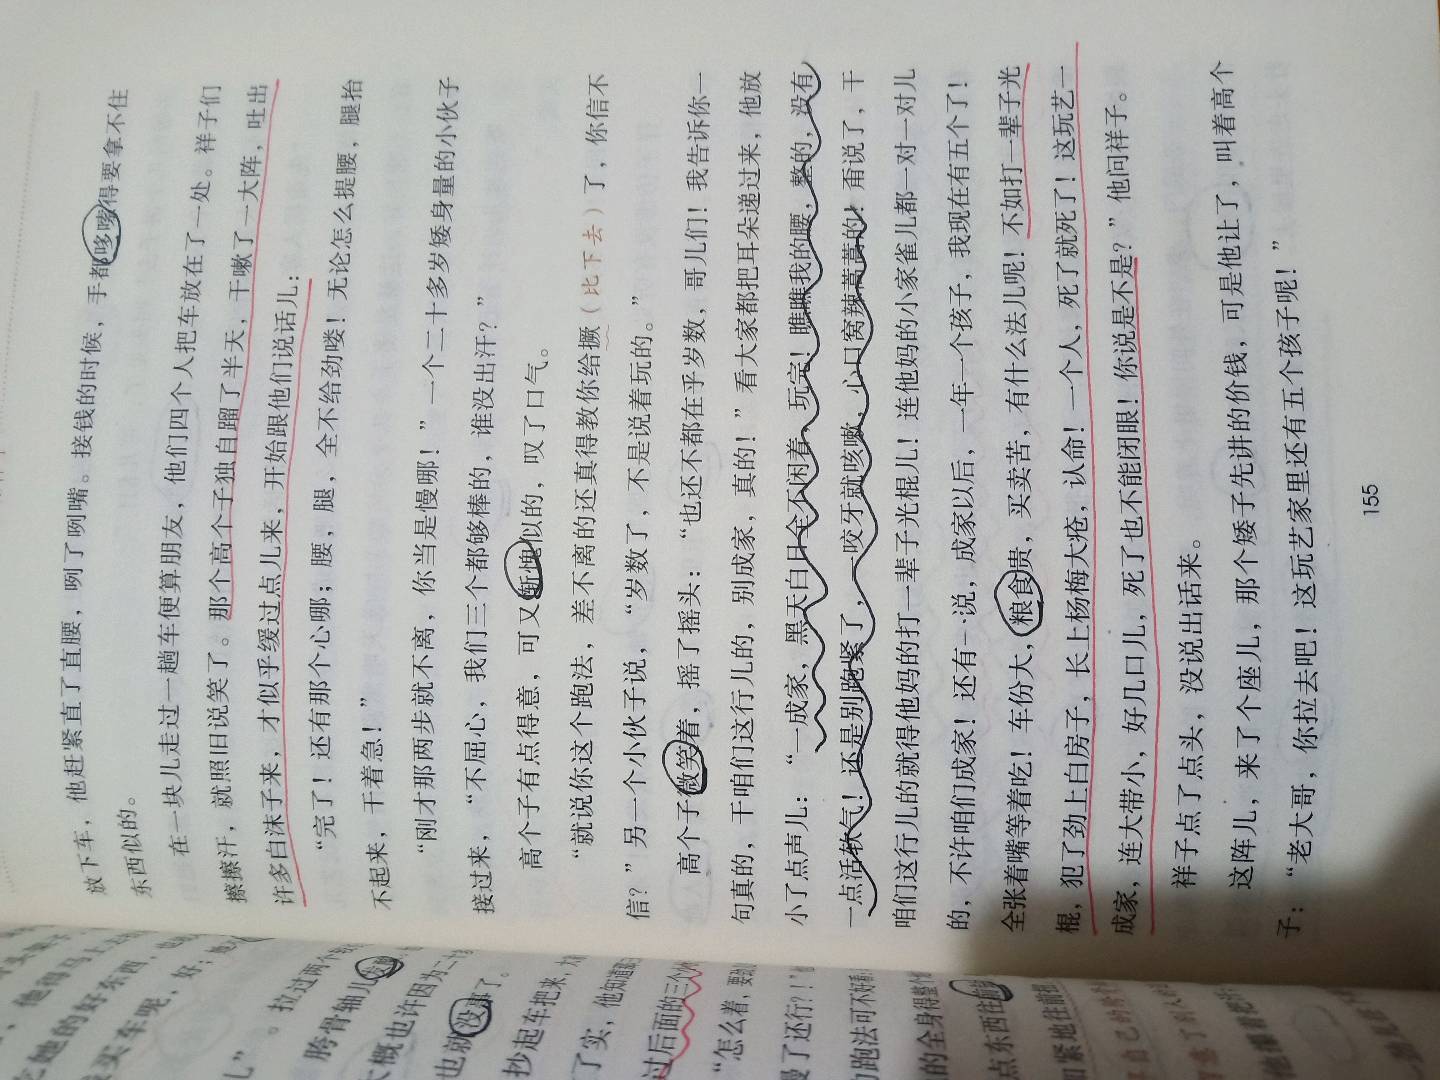 放下车，他赶紧直了直腰，咧了咧嘴。接钱的时候，手都哆嗦得要拿不住
东西似的。
在一块儿走过一趟车便算朋友，他们四个人把车放在了一处。祥子们
擦擦汗，就照旧说笑了。那个高个子独自蹓了半天，干嗽了一大阵，吐出
许多白沫子来，才似乎缓过点儿来，开始跟他们说话儿：
“完了！还有那个心哪；腰，腿，全不给劲喽！无论怎么提腰，腿抬
不起来，干着急！”
“刚才那两步就不离，你当是慢哪！”一个二十多岁矮身量的小伙子
接过来，“不屈心，我们三个都够棒的，谁没出汗？”
高个子有点得意，可又惭愧似的，叹了口气。
“就说你这个跑法，差不离的还真得教你给撅（比下去）了，你信不
信？”另一个小伙子说，“岁数了，不是说着玩的。”
高个子微笑着，摇了摇头：“也还不都在乎岁数，哥儿们！我告诉你一
句真的，干咱们这行儿的，别成家，真的！”看大家都把耳朵递过来，他放
小了点声儿：“一成家，黑天白日全不闲着，玩完！瞧瞧我的腰，整的，没有
一点活软气！还是别跑紧了，一咬牙就咳嗽，心口窝辣蒿蒿的！甭说了，干
咱们这行儿的就得他妈的打一辈子光棍儿！连他妈的小家雀儿都一对一对儿
的，不许咱们成家！还有一说，成家以后，一年一个孩子，我现在有五个了！
全张着嘴等着吃！车份大，粮食贵，买卖苦，有什么法儿呢！不如打一辈子光
棍，犯了劲上白房子，长上杨梅大疮，认命！一个人，死了就死了！这玩艺一
成家，连大带小，好几口儿，死了也不能闭眼！你说是不是？”他问祥子。
祥子点了点头，没说出话来。
这阵儿，来了个座儿，那个矮子先讲的价钱，可是他让了，叫着高个
子：“老大哥，你拉去吧！这玩艺家里还有五个孩子呢！”
155
她的好东西，也
买车呢，好；她
儿”。拉过两个
胯骨轴儿
概也许因为二
也就没事了。
抄起车把来，
了实，他知道
过后面的三个
“怎么着，要
慢了还行？！”
跑法可不好看
的全身得整个
点东西往前